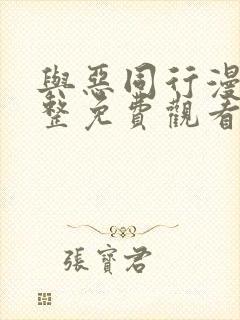 與惡同行漫
整免費觀看
張寶君